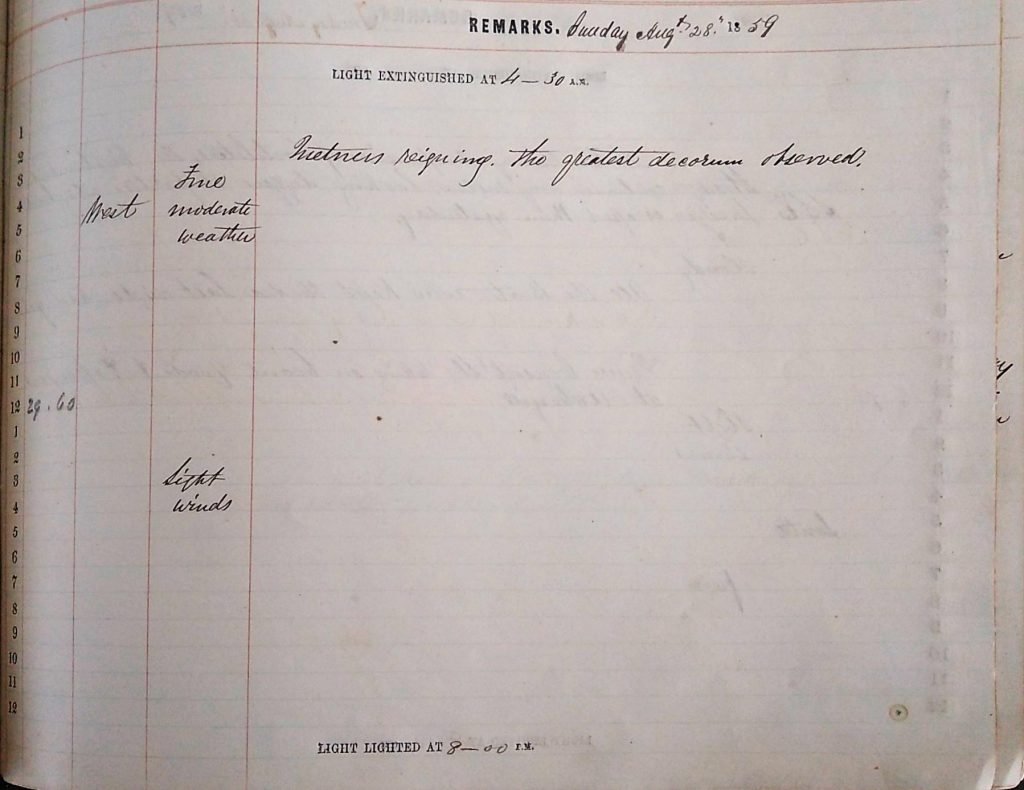 REMARKS. Sunday Augt 28. 1859
LIGHT EXTINGUISHED AT 4 — 30 A.M.
1
2
reigning. The greatest decorum observed.
3
Fine
4
West moderate
5
weather
6
7
8
9
10
11
12 29.60
1
2
3
Light
4
winds
5
6
7
8
9
10
11
12
LIGHT LIGHTED AT 8 — 00 P.M.